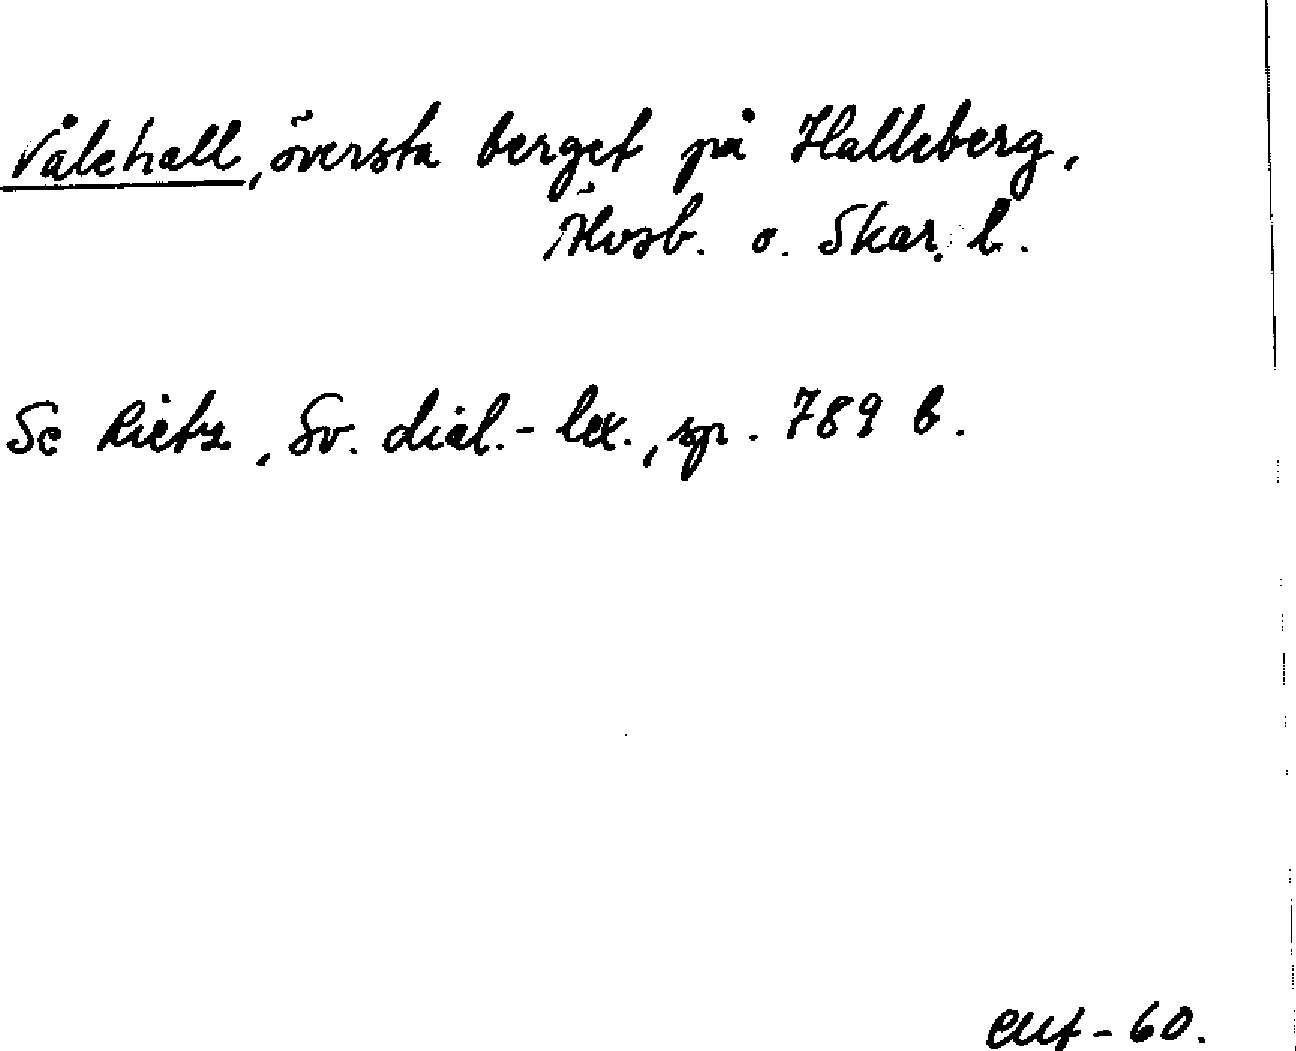 Vålehall, översta berget på Halleberg,
Älvsb. o. Skar. l.
Se Rietz, Sv. dial.-lex., sp. 789 b.
-60.